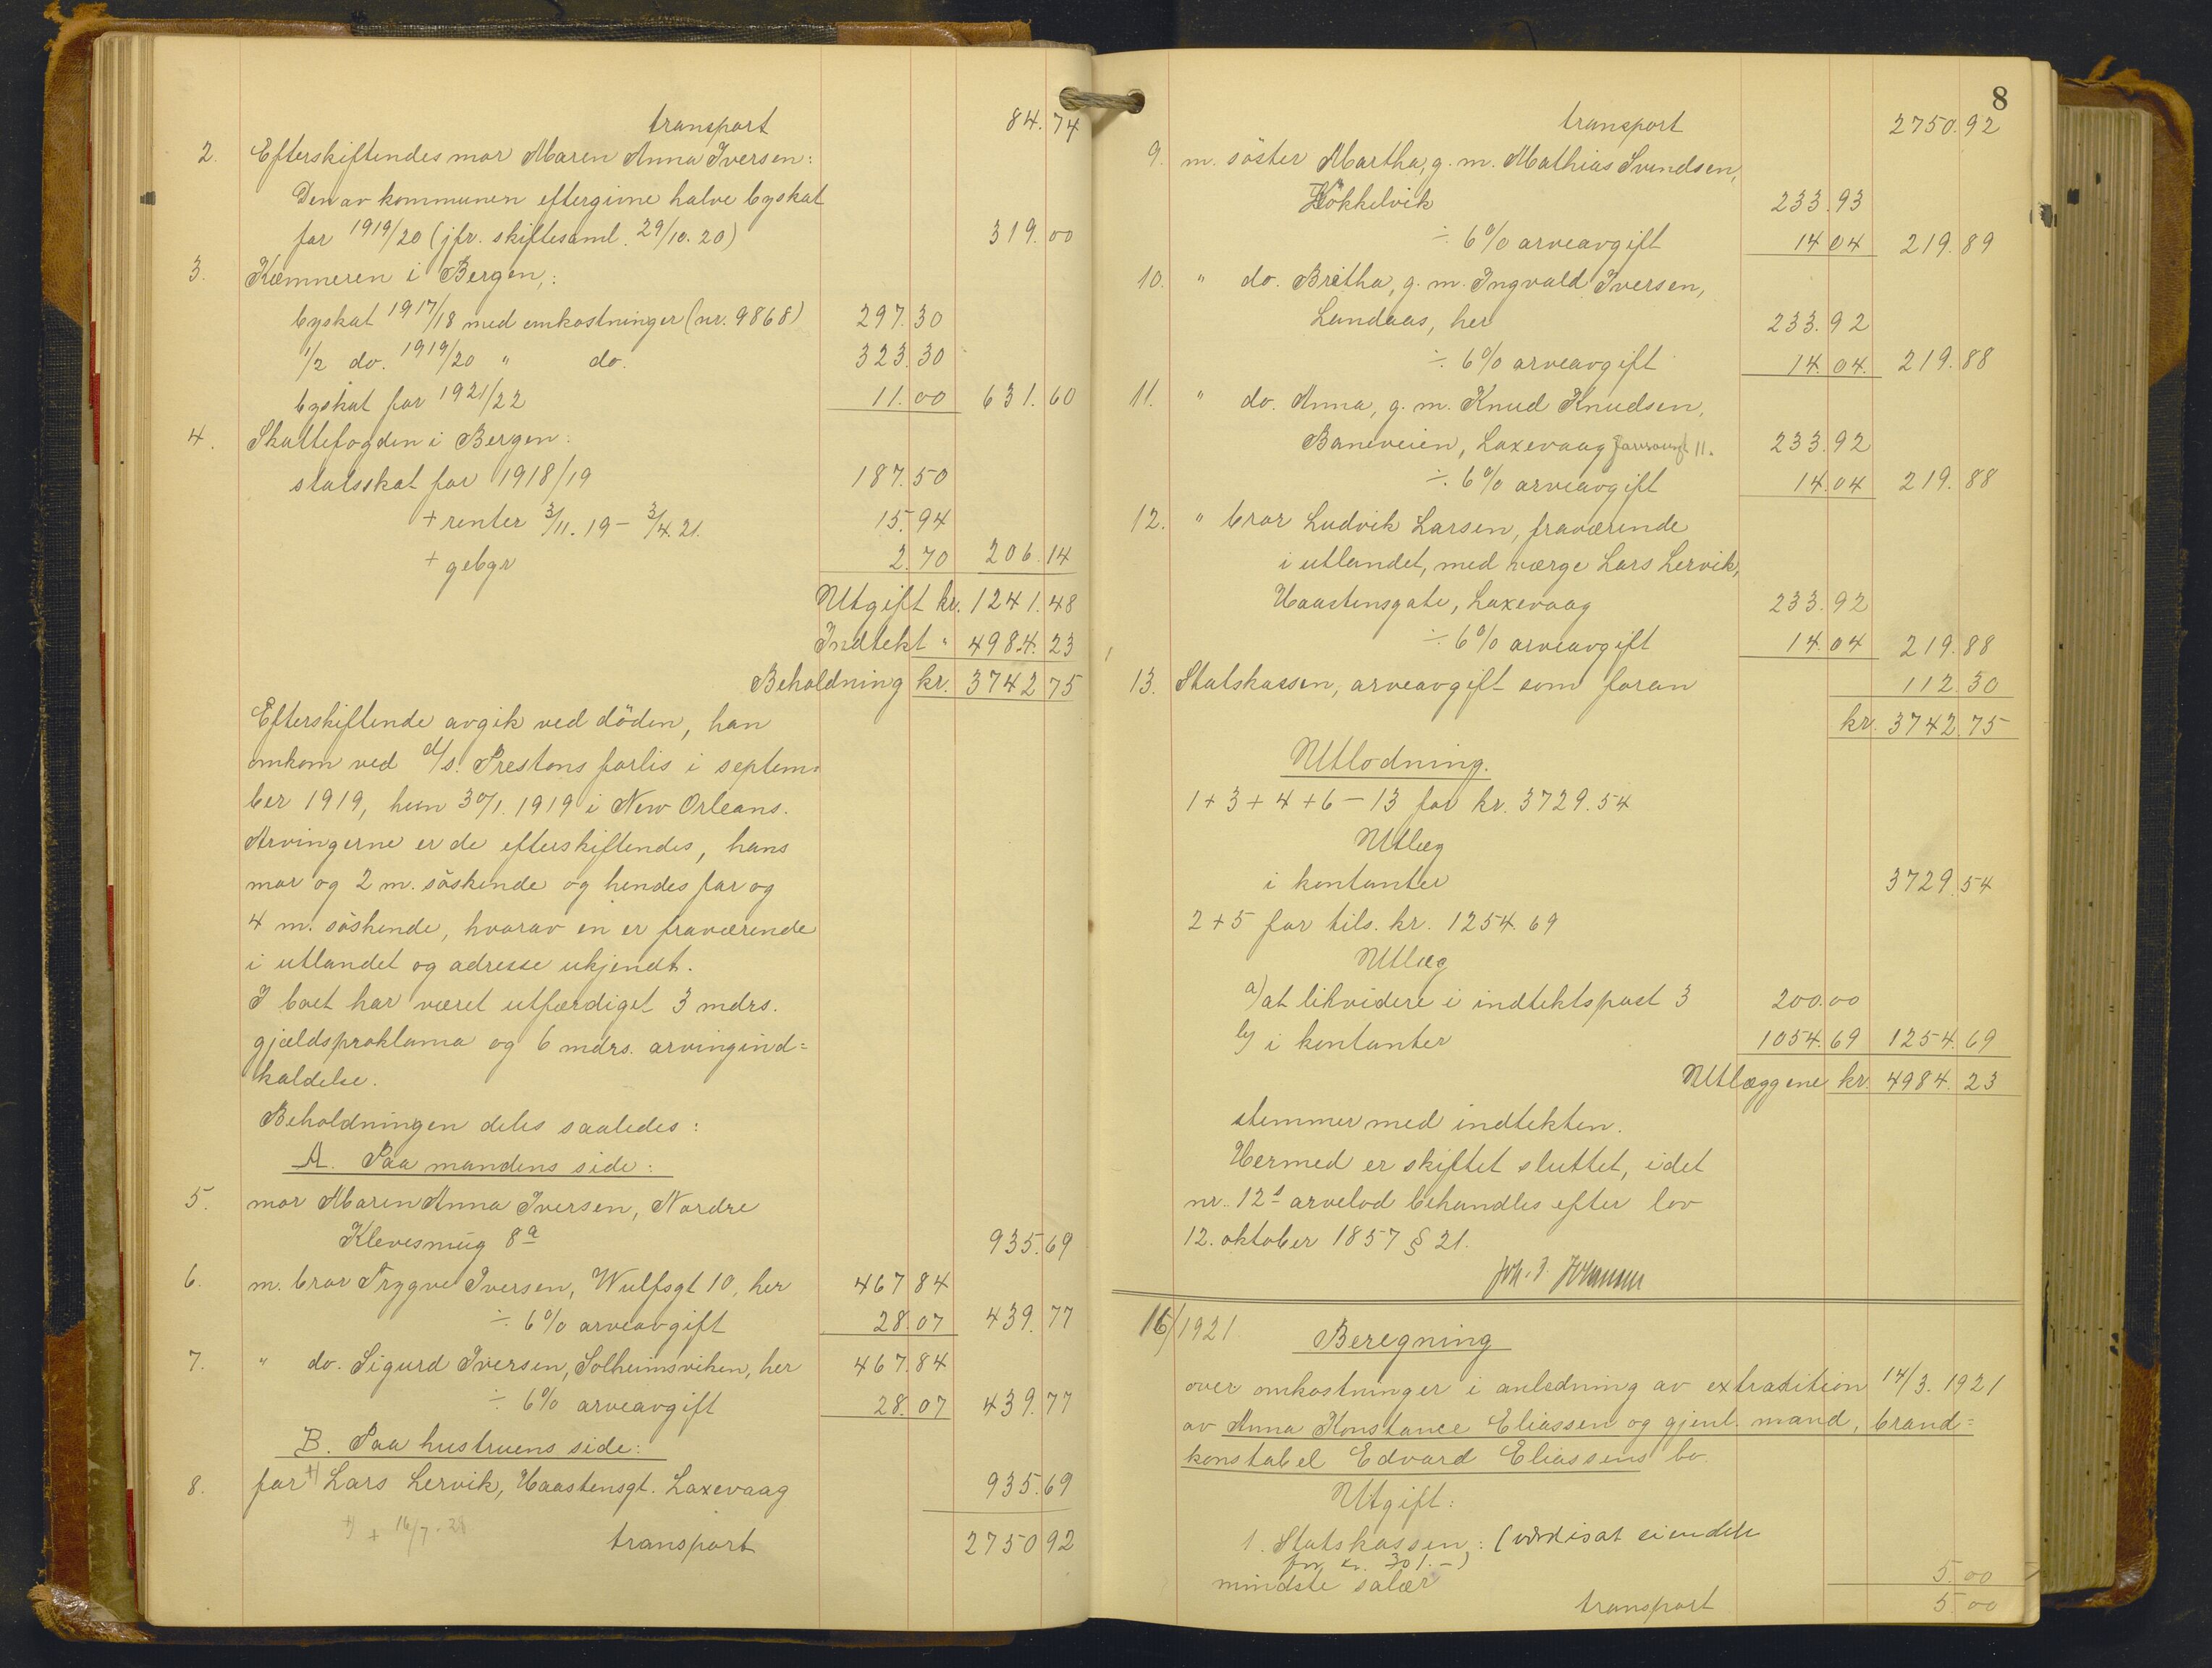 transport 84.74
2. Efterskiftendes mor Maren Anna Iversen:
Den av kommunen eftergivne halve byskat
for 1919/20 (jfr. skiftesaml. 29/10.20) 319.00
3. Kæmneren i Bergen,:
byskat 1917/18 med omkostninger (nr. 9868) 297.30
1/2 do. 1919/20 " do. 323.30
byskat for 1921/22 11.00 631.60
4. Skattefogden i Bergen:
statsskat for 1918/19 187.50
+ renter 3/11.19 – 3/4.21. 15.94
+ gebyr 2.70 206.14
Utgift kr. 1241.48
Indtekt " 4984.23
Beholdning kr. 3742.75
Efterskiftende avgik ved döden, han
omkom ved d/s. Prestons forlis i septem-
ber 1919, hun 30/1.1919 i New Orleans.
Arvingerne er de efterskiftendes, hans
mor og 2 m. söskende og hendes far og
4 m. söskende, hvorav en er fraværende
i utlandet og adresse ukjendt.
I boet har været utfærdiget 3 mdrs.
gjældsproklama og 6 mdrs. arvingind=
kaldelse.
Beholdningen deles saaledes:
A. Paa mandens side:
5. mor Maren Anna Iversen, Nordre
Klevesmug 8a 935.69
6. m. bror Trygve Iversen, Wulfsgt 10, her 467.84
÷ 6% arveavgift 28.07 439.77
7. " do. Sigurd Iversen, Solheimsviken, her 467.84
÷ 6% arveavgift 28.07 439.77
B. Paa hustruens side:
8. far +) Lars Lervik, Haastensgt. Laxevaag 935.69
+) + 16/7.28
transport 2750.92
8
transport 2750.92
9. m. söster Martha, g. m. Mathias Svendsen,
Hökkelvik 233.93
÷ 6% arveavgift 14.04 219.89
10. " do. Britha, g. m. Ingvald Iversen,
Landaas, her 233.92
÷ 6% arveavgift 14.04. 219.88
11. " do. Anna, g. m. Knud Knudsen,
Baneveien, Laxevaag 11. 233.92
÷ 6% arveavgift 14.04 219.88
12. " bror Ludvik Larsen, fraværende
i utlandet, med værge Lars Lervik,
Haastensgate, Laxevaag 233.92
÷ 6% arveavgift 14.04 219.88
13. Statskassen, arveavgift som foran 112.30
kr. 3742.75
Utlodning.
1 + 3 + 4 + 6 – 13 for kr. 3729.54
Utlæg
i kontanter 3729.54
2 + 5 for tils. kr. 1254.69
Utlæg
a) at likvidere i indtektspost 3 200.00
b) i kontanter 1054.69 1254.69
Utlæggene kr. 4984.23
stemmer med indtekten.
Hermed er skiftet sluttet, idet
nr. 12s arvelod behandles efter lov
12. oktober 1857 § 21.
16/1921. Beregning
over omkostninger i anledning av extradition 14/3.1921
av Anna Konstance Eliassen og gjenl. mand, brand=
konstabel Edvard Eliassens bo.
Utgift:
1. Statskassen,: (værdisat eiendele
for kr. 301.–)
mindste salær 5.00
transport 5.00